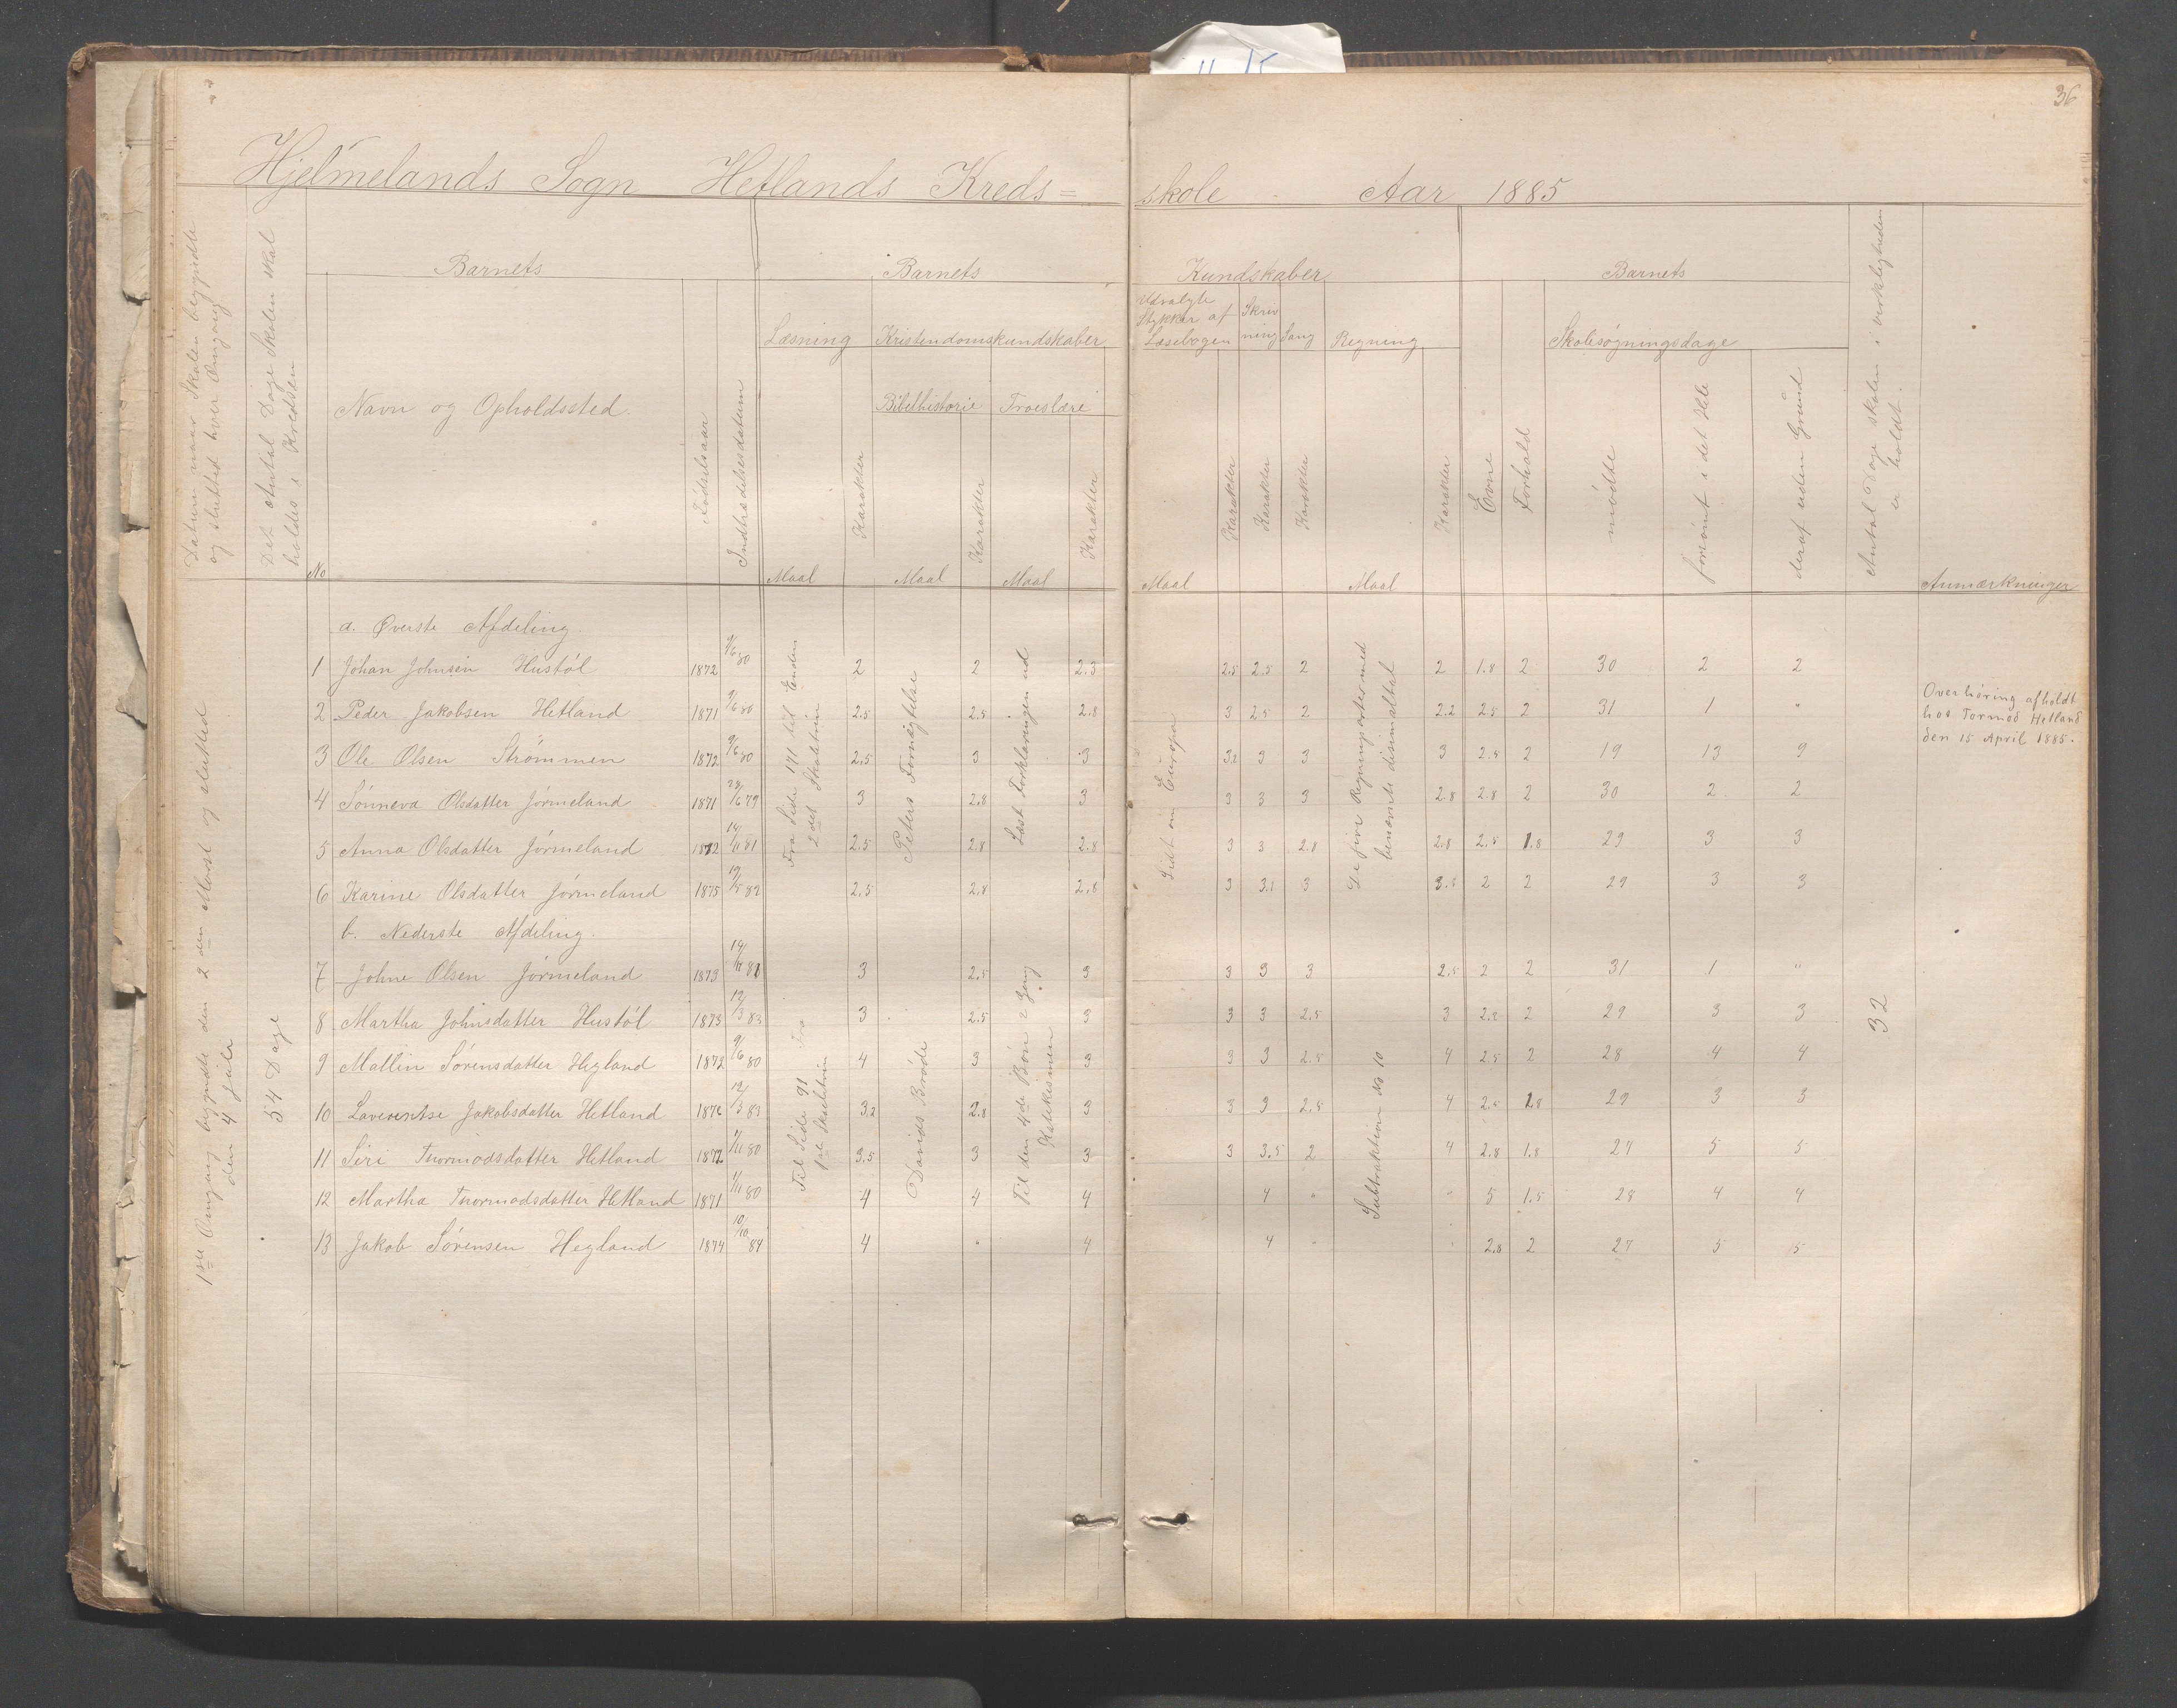 36
Hjelmelands Sogn Hetlands Kreds=
skole Aar 1885
Datum naar Skolen begyndte
og slutted hver Omgang
Det Antal Dage Skolen skal
holdes i Kredsen
Barnets
Barnets
Kundskaber
Barnets
Læsning Kristendomskundskaber
Bibelhistorie Troeslære
Udvalgte
Stykker af
Læsebogen
Skriv
ning
Sang
Regning
Skolesøgningsdage
No
Navn og Opholdssted.
Fødselsaar
Indtrædelsesdatum
Maal Karakter Maal Karakter Maal Karakter
Maal Karakter Karakter Karakter Maal Karakter
Evne
Forhold
mødte
forsømt i det Hele
deraf uden Grund
Antal Dage skolen i virkeligheden
er holdt.
Anmærkninger
1ste Omgang begyndte den 2den Marst og slutted
den 4 Jula
54 Dage
a. Øverste Afdeling.
1 Johan Johnsen Hustøl 1872 9/6 80 2 2 2.3 2.5 2.5 2 2 1.8 2 30 2 2
2 Peder Jakobsen Hetland 1871 9/6 80 2.5 2.5 2.8 3 2.5 2 2.2 2.5 2 31 1 "
3 Ole Olsen Strømmen 1872 9/6 80 2.5 3 3 3.2 3 3 3 2.5 2 19 13 9
4 Sønneva Olsdatter Jørmeland 1871 24/6 79 3 2.8 3 3 3 3 2.8 2.8 2 30 2 2
5 Anna Olsdatter Jørmeland 1872 14/11 81 2.5 2.8 2.8 3 3 2.8 2.8 2.5 1.8 29 3 3
6 Karine Olsdatter Jørmeland 1875 19/5 82 2.5 2.8 2.8 3 3.1 3 2 2 29 3 3
Fra Side 171 til Enden
2det Skoletrin
Peters Fornegtelse
Læst Forklaringen ud
Lidt om Europa
De fire Regningsarter med
benævnte disimaltal
b. Nederste Afdeling.
7 Johne Olsen Jørmeland 1873 14/11 81 3 2.5 3 3 3 3 2.5 2 2 31 1 "
8 Martha Johnsdatter Hustøl 1873 12/3 83 3 2.5 3 3 3 2.5 3 2.2 2 29 3 3
9 Mallin Sørensdatter Hegland 1872 9/6 80 4 3 3 3 3 2.5 4 2.5 2 28 4 4
10 Laverentse Jakobsdatter Hetland 1876 12/3 83 3.2 2.8 3 3 3 2.5 4 2.5 1.8 29 3 3
11 Siri Tnormodsdatter Hetland 1872 1/11 80 3.5 3 3 3 3.5 2 4 2.8 1.8 27 5 5
12 Martha Tnormodsdatter Hetland 1871 1/11 80 4 4 4 4 " " 5 1.5 28 4 4
13 Jakob Sørensen Hegland 1874 10/10 84 4 " 4 4 " " 2.8 2 27 5 5
Til Side 91 Fra
1ste Skoletrin
Davids Brøde
Til den 4de Bøn 2 Gang
Katekismen
Subtraktion No 10
32
Overhøring afholdt
hos Tormod Hetland
den 15 April 1885.